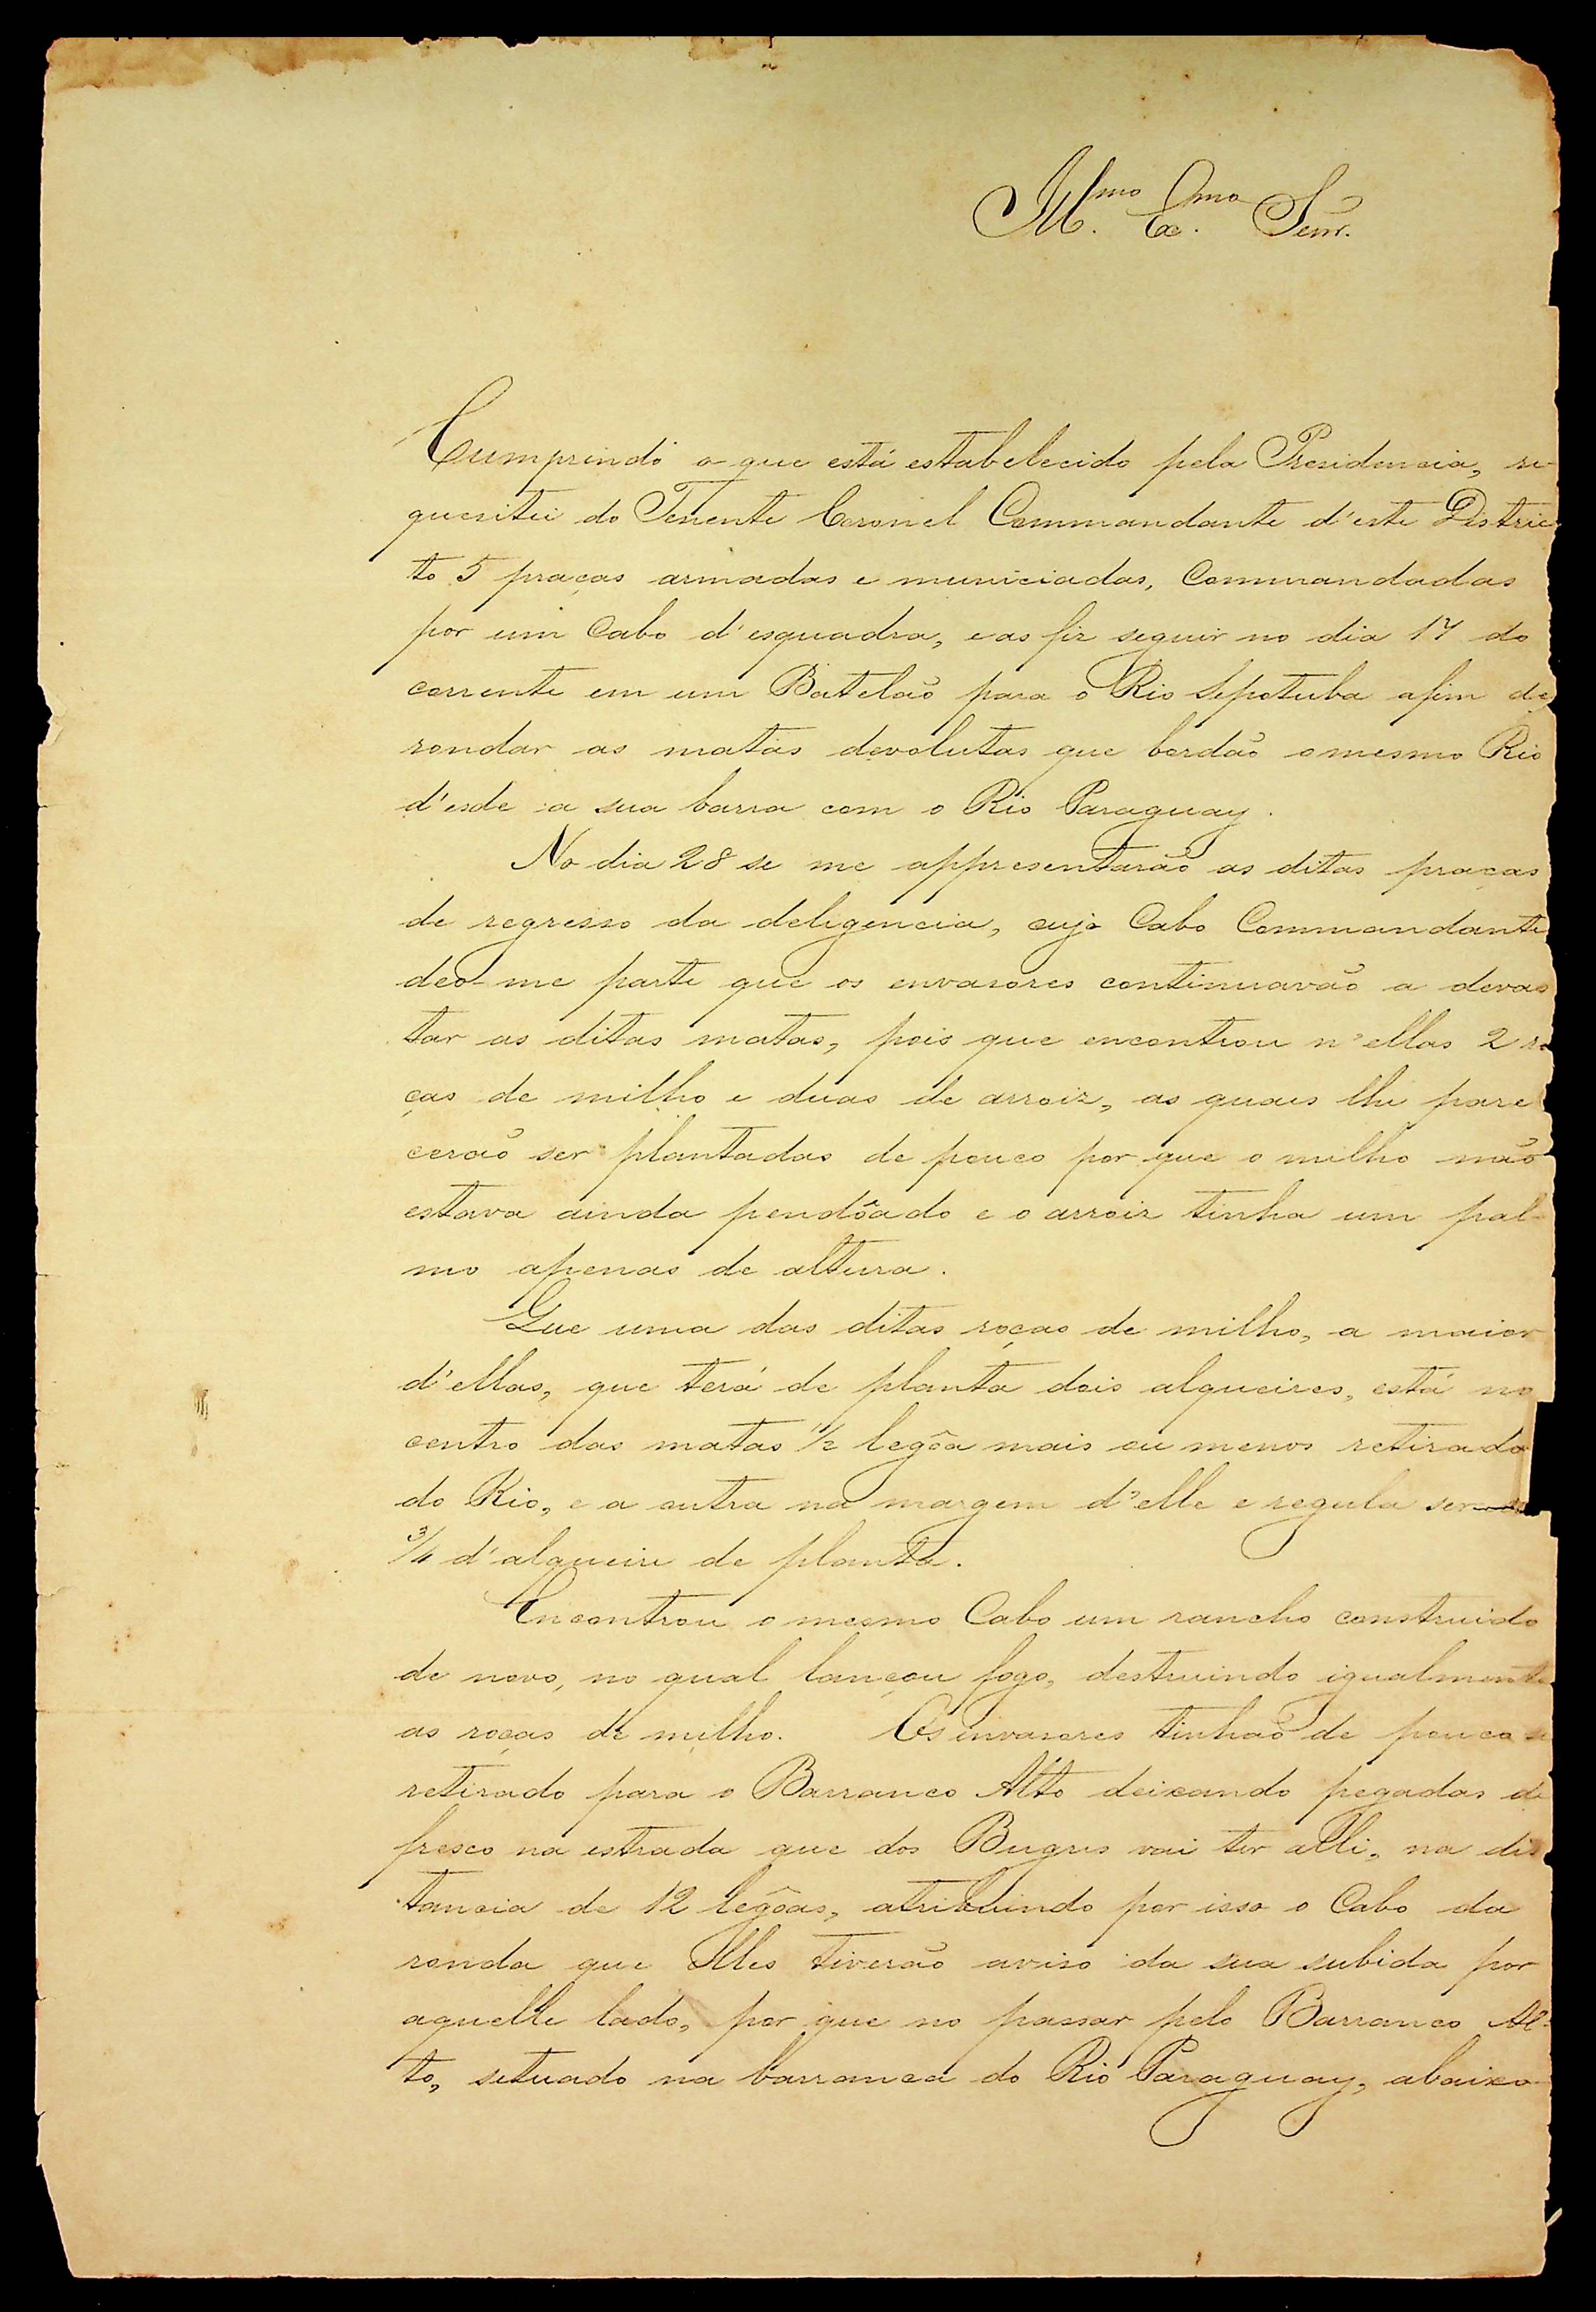 Ill.mo Ex.mo Senr.
Cumprindo o que está estabelecido pela Presidencia, re-
quesitei do Tenente Coronel Commandante d'este Distric
to 5 praças armadas e municiadas, Commandadas
por um Cabo d'esquadra, e as fiz seguir no dia 17 do
corrente em um Batelão para o Rio Sepotuba afim de
rondar as matas devolutas que bordão o mesmo Rio
d'esde a sua barra com o Rio Paraguay.
No dia 28 se me appresentarão as ditas praças
de regresso da deligencia, cujo Cabo Commandante
deo-me parte que os envasores continuavão a devas
tar as ditas matas, pois que encontrou n'ellas 2 ro
ças de milho e duas de arroiz, as quais lhe pare
cerão ser plantadas de pouco por que o milho não
estava ainda pendôado e o arroiz tinha um pal-
mo apenas de altura.
Que uma das ditas roças de milho, a maior
d'ellas, que terá de planta dois alqueires, está no
centro das matas 1/2 legôa mais ou menos retirada
do Rio, e a outra na margem d'elle e regula ser
3/4 d'alqueire de planta.
Encontrou o mesmo Cabo um rancho construido
de novo, no qual lançou fogo, destruindo igualmente
as roças de milho. Os invasores tinhão de pouco se
retirado para o Barranco Alto deixando pegadas de
fresco na estrada que dos Bugres vai ter alli, na dis
tancia de 12 legôas, atribuindo por isso o Cabo da
ronda que elles tiverão aviso da sua subida por
aquelle lado, por que no passar pelo Barranco Al-
to, situado na barranca do Rio Paraguay, abaixo